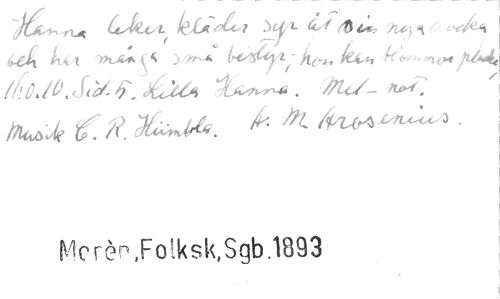 Hanna leker, kläder syr åt sin nya docka
och har många små bestyr; hon kan blommor plocka,
11:0.10. Sid. 5. Lilla Hanna. Mel-not.
Musik C. R. Hümbla. A. M. Arosenius.
Morèn,Folksk,Sgb.1893